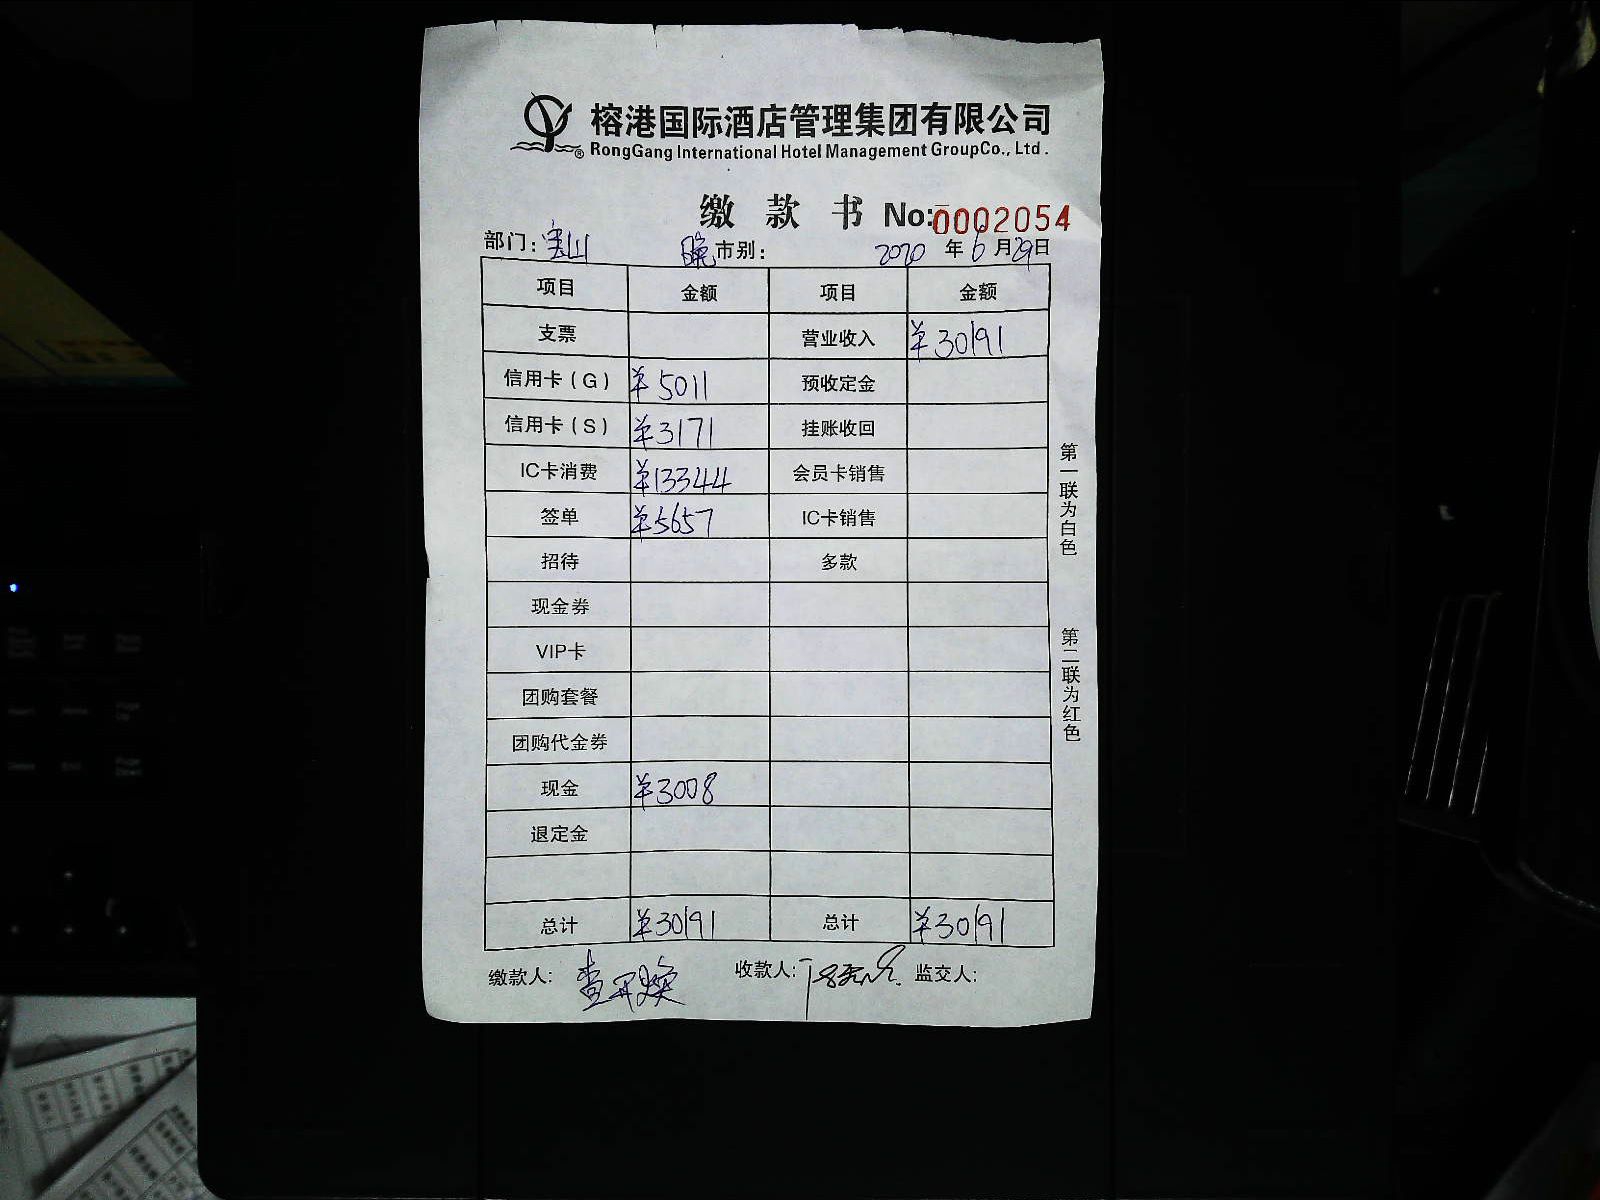 榕港国际酒店管理集团有限公司
® RongGang International Hotel Management GroupCo., Ltd.
缴 款 书 No:0002054
部门: 宝山 晚市别: 2020 年 6 月 29 日
项目 金额 项目 金额
支票 营业收入 ¥30191
信用卡(G) ¥5011 预收定金
信用卡(S) ¥3171 挂账收回
IC卡消费 ¥13344 会员卡销售
签单 ¥5657 IC卡销售
招待 多款
现金券
VIP卡
团购套餐
团购代金券
现金 ¥3008
退定金
总计 ¥30191 总计 ¥30191
缴款人: 收款人: 监交人:
第一联为白色
第二联为红色